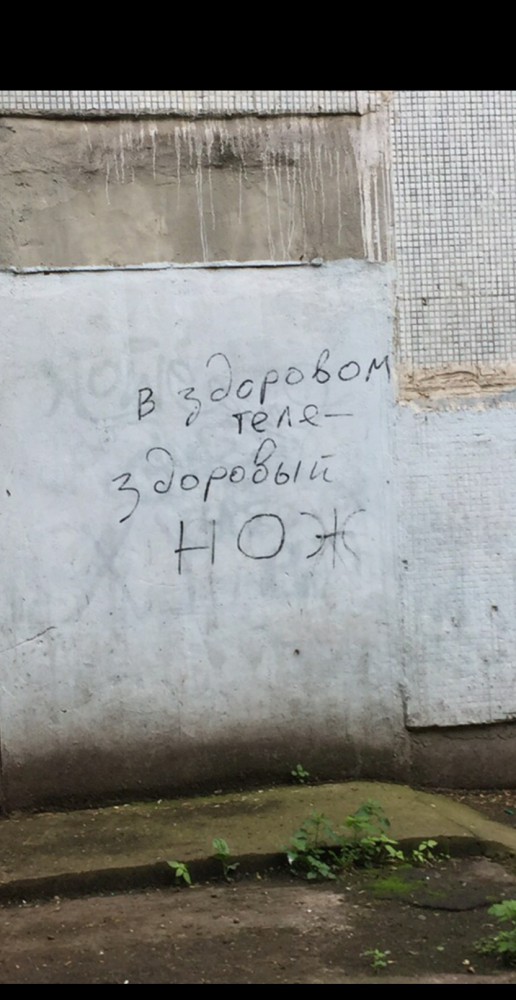 в здоровом
теле-
здоровый
НОЖ